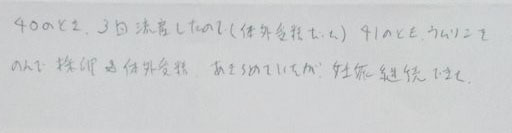 40のとき、3回流産したので(体外受精もした) 41のとき、ウムリンを
のんで 採卵 体外受精 あきらめていたが、妊娠継続できた。